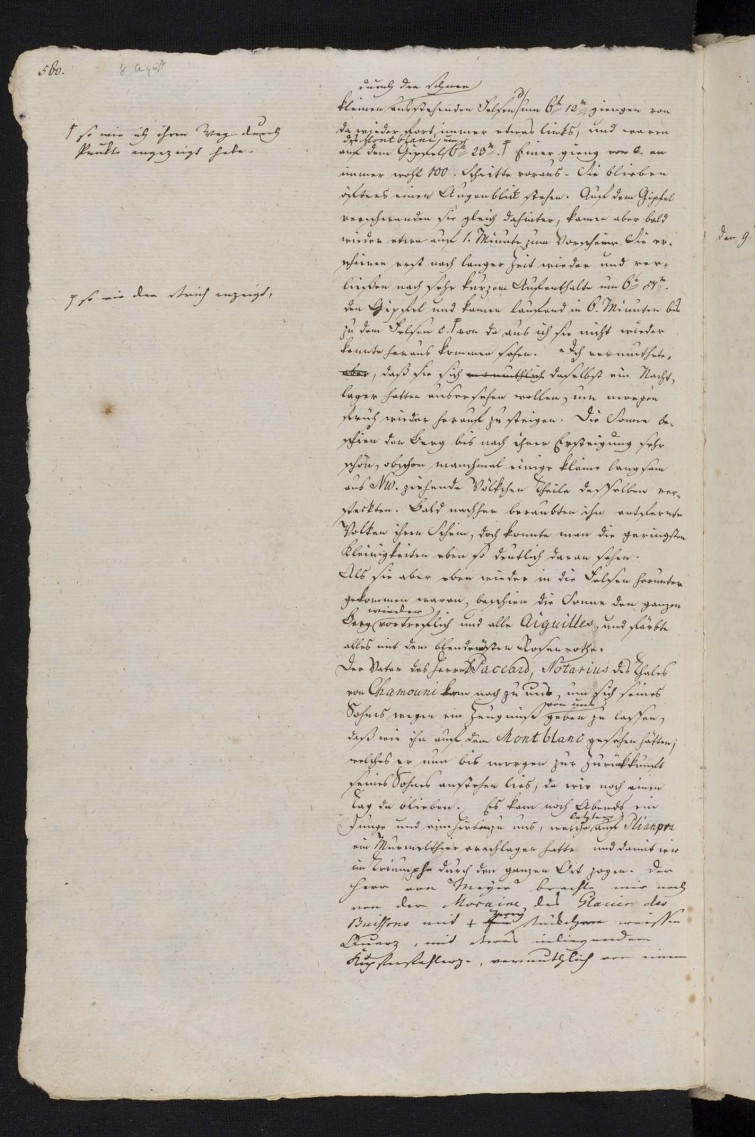 560.
8 August
† so wie ich ihren Weg durch
Punkte angezeigt habe.
‡ so wie der Strich anzeigt,
durch den Schnee
kleinen ausstehenden Felsen um 6h 12m giengen von
da wieder fort, immer etwas links, und waren
des Montblanc, um
auf dem Gipfel 6h 23m.† Einer gieng von a. an
immer wohl 100. Schritte voraus. Sie blieben
öfters einen Augenblick stehen. Auf dem Gipfel
verschwanden sie gleich dahinter, kamen aber bald
wieder etwa auf 1. Minute zum Vorschein. Sie er-
schienen erst nach langer Zeit wieder und ver-
ließen nach sehr kurzem Aufenthalte um 6h 57m.
den Gipfel und kamen laufend in 6. Minuten bis
zu dem Felsen c.‡ von da aus ich sie nicht wieder
konnte heraus kommen sehen. Ich vermuthete,
aber, daß sie sich vermuthlich daselbst ein Nacht-
lager hatten aussersehen wollen, um morgen
früh wieder herauf zu steigen. Die Sonne be-
schien den Berg bis nach ihrer Ersteigung sehr
schön, obschon manchmal einige kleine langsam
aus NW. ziehende Wölkchen Theile desselben ver-
steckten. Bald nachher beraubten ihn entfernte
Wolken ihren Schein, doch konnte man die geringsten
Kleinigkeiten eben so deutlich daran sehen.
Als sie aber eben wieder in die Felsen herunter
gekommen waren, beschien die Sonne den ganzen
wieder
Berg vortreflich und alle Aiguilles, und färbte
alles mit dem blendensten Rosenrothe.
Der Vater des Herrn Paccard, Notarius des Thales
von Chamouni kam nach zu uns, um sich seines
von uns
Sohnes wegen ein Zeugniß geben zu lassen,
daß wir ihn auf dem Montblanc gesehen hätten;
welches er nun bis morgen zur Zurückkunft
seines Sohnes anstehen lies, da wir noch einen
Tag da blieben. Es kam noch Abends ein
letzterer
Junge und ein Hirt zu uns, welcher auf Plianpra
ein Murmelthier erschlagen hatte und damit er
im Triumphe durch den ganzen Ort zogen. Der
Herr von Meyer brachte mir noch
von der Moraine des Glacier des
Buissons mit + Stückchen weissen
Quarz, mit etwas inliegendem
Kupferfahlerz, vermuthlich von einem
den 9.